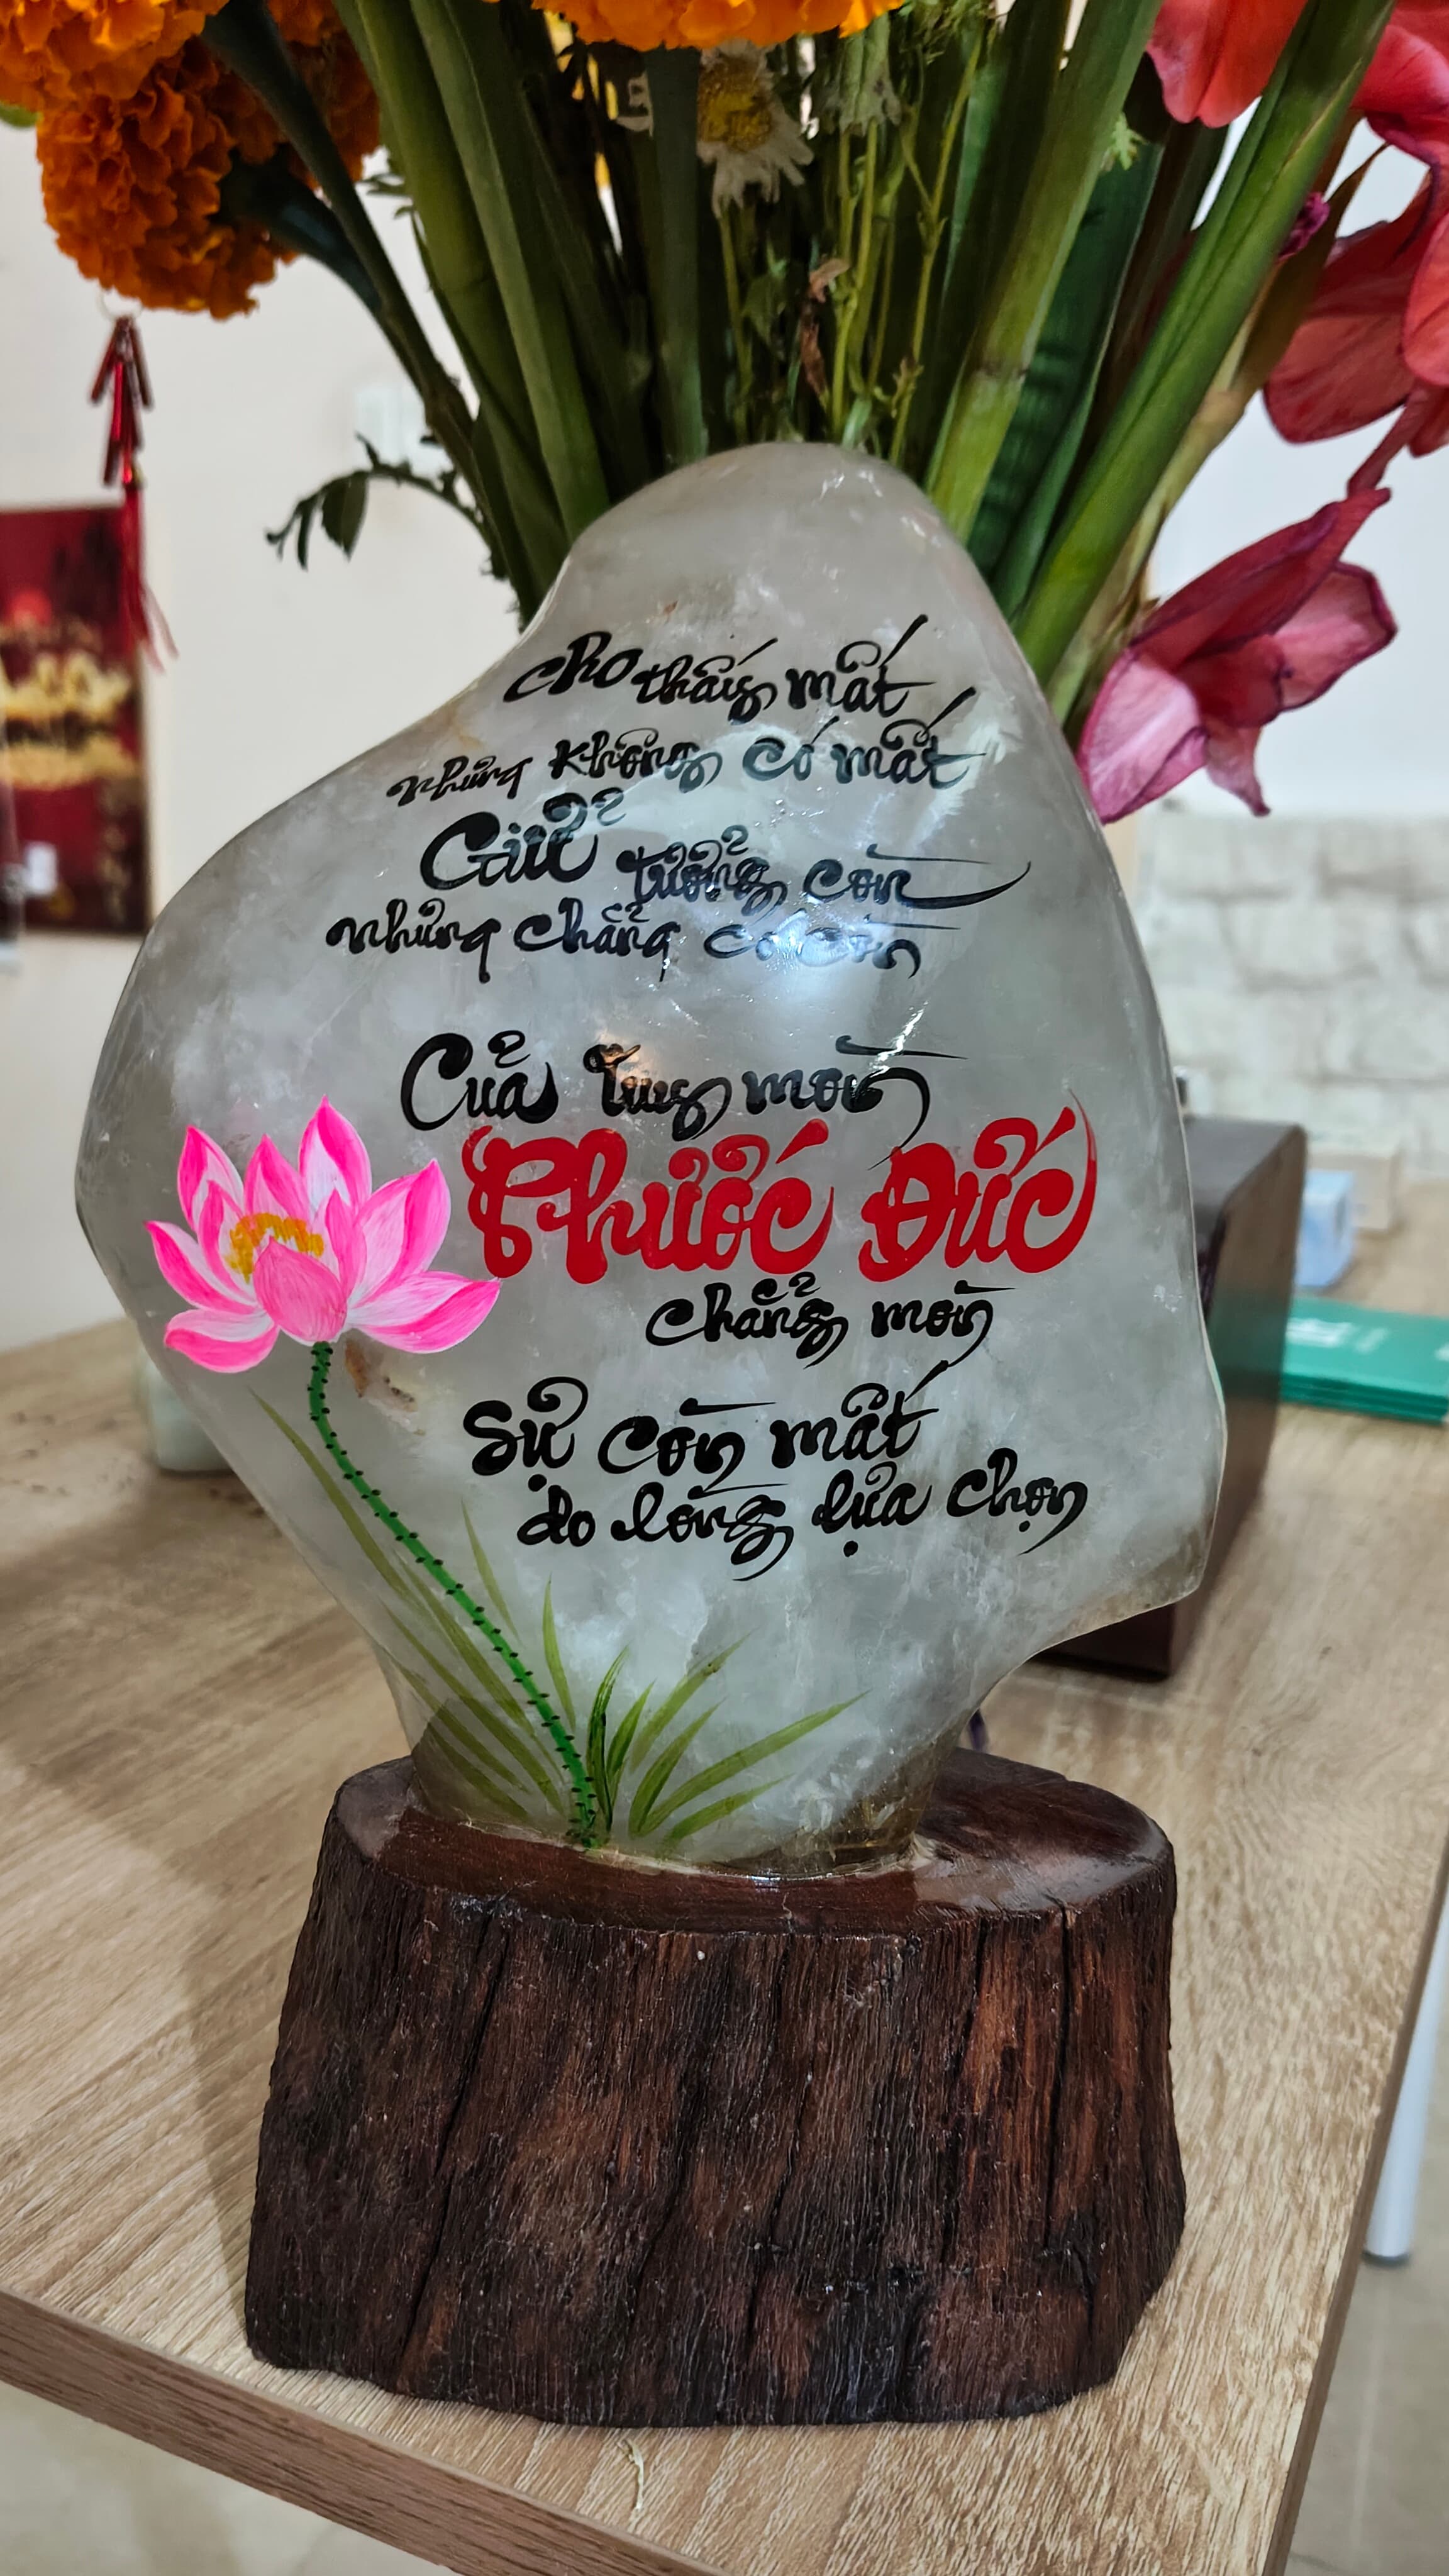 cho thấy mất
nhưng không có mất
Giữ tưởng còn
nhưng chẳng có còn
Của tuy mòn
Phước Đức
chẳng mòn
Sự còn mất
do lòng lựa chọn